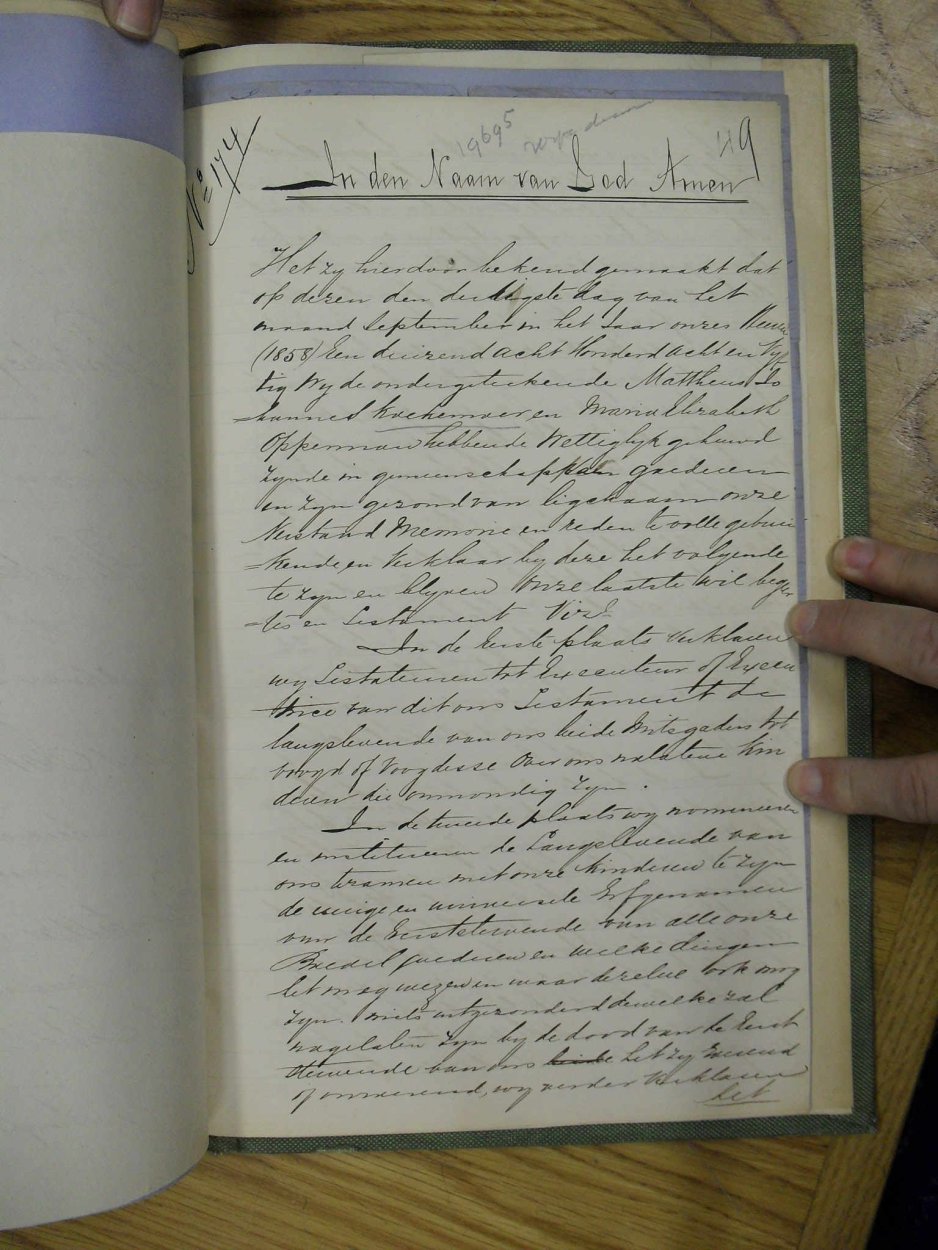 19695
49
No 174
In den Naam van God Amen
Het zy hierdoor bekend gemaakt dat
op dezen den dertigste dag van het
maand September in het Jaar onzes Heeren
(1858) Een duizend acht Honderd acht en Vyf
tig Wy de ondergeteekende Mattheus Jo
=hannes Koekemoer en Maria Elizabeth
Opperman hebbende Wettiglyk gehuwd
zynde in gemeenschap van goederen
en zyn gezond van ligchaam onze
Verstand Memorie en reden te volle gebrui
=kende en Verklaar by deze het volgende
te zyn en blyven Onze laatste wil begeer
=tes en Testament Vizt
In de Eerste plaats Verklaren
wy Testateuren tot Executeur of Execu
trice van dit ons Testament de
langslevende van ons beide Mitsgaders tot
voogd of Voogdesse Over ons nalatene kin
deren die onmondig Zyn.
In de tweede plaats wy nomineeren
en institueeren de Langslevende van
ons tezamen met onze kinderen te zyn
de eenige en universele Erfgenamen
van de Eerststervende van alle onze
Boedel goederen en welke dingen
het mag wezen en waar dezelve ook mog
zyn. niets uitgezonderd dewelke zal
nagelaten zyn by de dood van de Eerst
stervende van ons het zy roerend
of onroerend, wy verder Verklaren
het